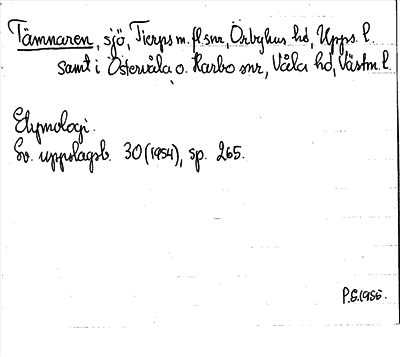 Tämnaren, sjö, Tierps m. fl. snr, Örbyhus hd, Upps. l.
samt i Östervåla o. Harbo snr, Våla hd, Västm. l.
Etymologi.
Sv. uppslagsb. 30 (1954), sp. 265.
P.S. 1956.